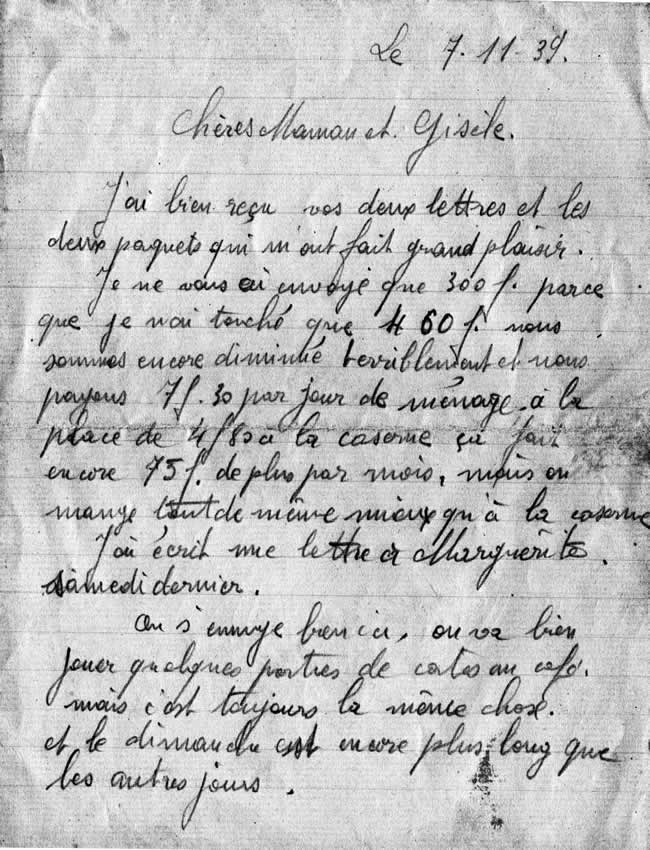 Le 7-11-39.
Chères Maman et. Gisèle.
J'ai bien reçu vos deux lettres et les
deux paquets qui m'ont fait grand plaisir.
Je ne vous ai envoyé que 300 f. parce
que je n'ai touché que 460 f. nous
sommes encore diminué terriblement et nous
payons 7f.30 par jour de ménage à la
place de 4f80 à la caserne ça fait
encore 75 f. de plus par mois, mais on
mange tout de même mieux qu'à la caserne
J'ai écrit une lettre à Marguerite.
samedi dernier.
On s'ennuye bien ici, on va bien
jouer quelques parties de cartes au café.
mais c'est toujours la même chose.
et le dimanche est encore plus long que
les autres jours.